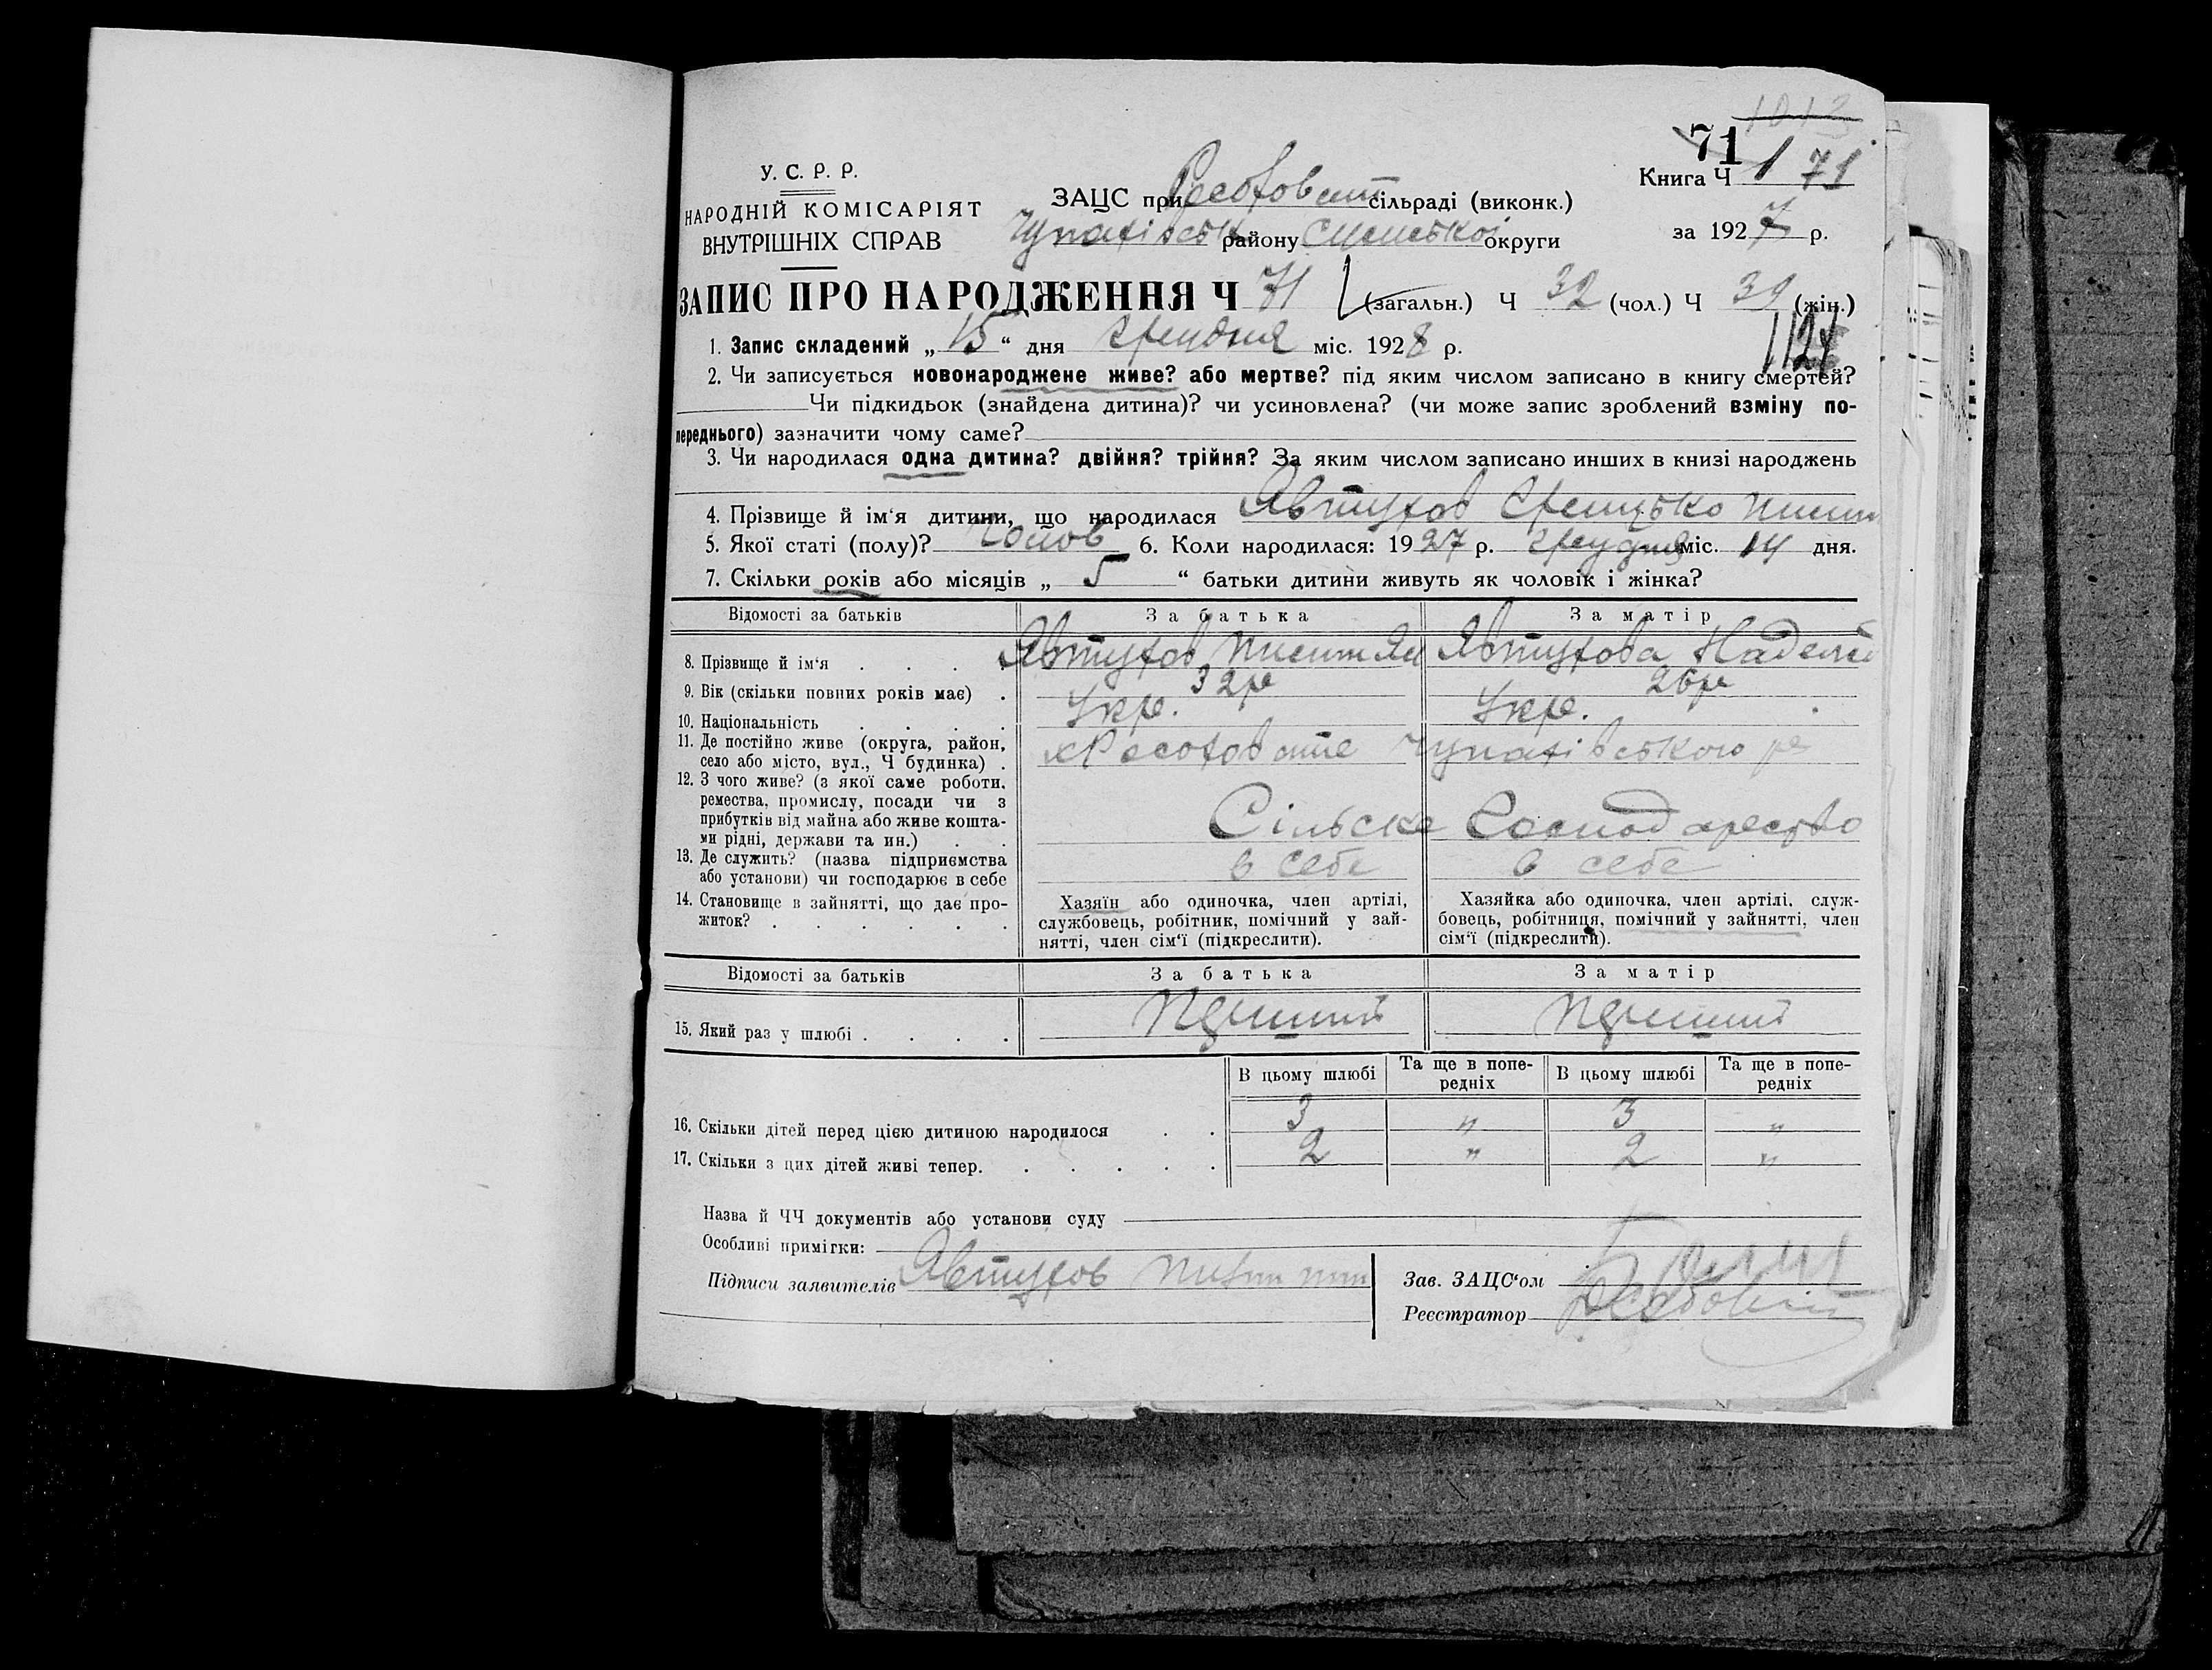 1013
71
У. С. Р. Р.
НАРОДНІЙ КОМІСАРІЯТ
ВНУТРІШНІХ СПРАВ
ЗАЦС при сільраді (виконк.)
району округи
Книга Ч 1 71
за 1927 р.
ЗАПИС ПРО НАРОДЖЕННЯ Ч 71 (загальн.) Ч 32 (чол.) Ч 39 (жін.)
1. Запис складений „ 15 “ дня грудня міс. 1928 р.
2. Чи записується новонароджене живе? або мертве? під яким числом записано в книгу смертей?
Чи підкидьок (знайдена дитина)? чи усиновлена? (чи може запис зроблений взміну по-
переднього) зазначити чому саме?
3. Чи народилася одна дитина? двійня? трійня? За яким числом записано инших в книзі народжень
4. Прізвище й ім'я дитини, що народилася Явтухов Грицько
5. Якої статі (полу)? чолов 6. Коли народилася: 1927 р. грудня міс. 14 дня.
7. Скільки років або місяців „ 5 “ батьки дитини живуть як чоловік і жінка?
Відомості за батьків За батька За матір
8. Прізвище й ім'я . . . . Явтухов Явтухова
9. Вік (скільки повних років має) . 32р 26р
10. Національність . . . . Укр. Укр.
11. Де постійно живе (округа, район,
село або місто, вул., Ч будинка) . Чупахівського р
12. З чого живе? (з якої саме роботи,
ремества, промислу, посади чи з
прибутків від майна або живе кошта-
ми рідні, держави та ин.) . . Сільське Господарство
13. Де служить? (назва підприємства
або установи) чи господарює в себе в себе в себе
14. Становище в зайнятті, що дає про-
житок? . . . . . .
Хазяїн або одиночка, член артілі,
службовець, робітник, помічний у зай-
нятті, член сім'ї (підкреслити).
Хазяйка або одиночка, член артілі, служ-
бовець, робітниця, помічний у зайнятті, член
сім'ї (підкреслити).
Відомості за батьків За батька За матір
15. Який раз у шлюбі . . . .
В цьому шлюбі Та ще в попе-
редніх В цьому шлюбі Та ще в попе-
редніх
16. Скільки дітей перед цією дитиною народилося . . 3 „ 3 „
17. Скільки з цих дітей живі тепер. . . . . . 2 „ 2 „
Назва й ЧЧ документів або установи суду
Особливі примітки:
Підписи заявителів Явтухов
Зав. ЗАЦС'ом
Реєстратор